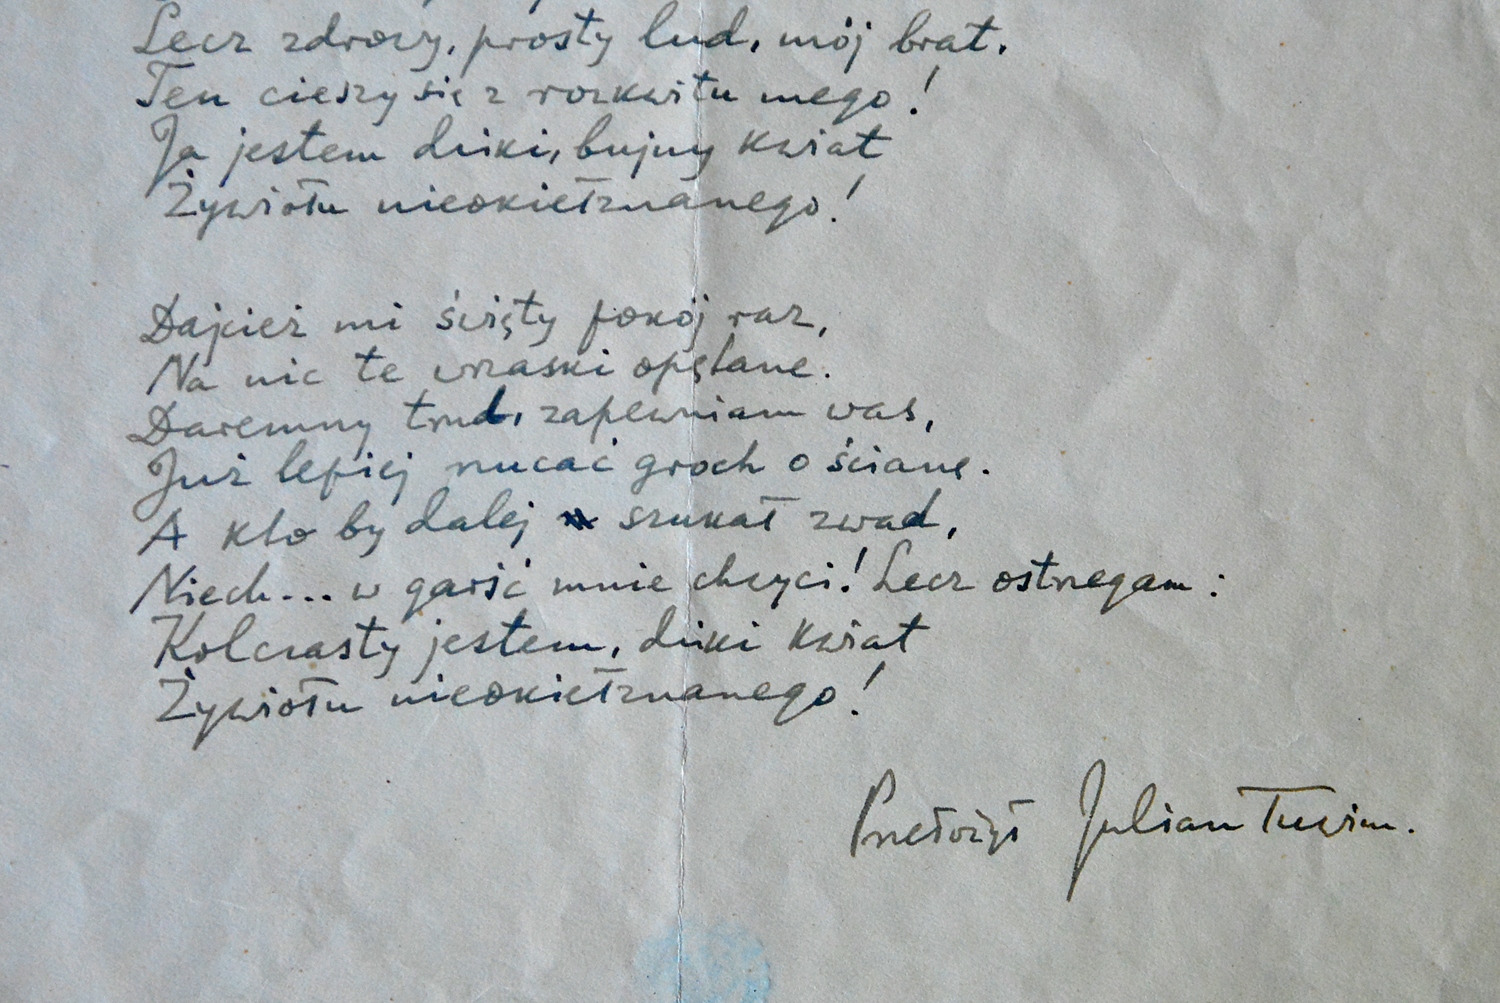 Lecz zdrowy, prosty lud, mój brat.
Ten cieszy się z rozkwitu mego!
Ja jestem dziki, bujny kwiat
Żywiołu nieokiełznanego!
Dajcież mi święty pokój raz,
Na nic te wrzaski opętane.
Daremny trud, zapewniam was,
Już lepiej rzucać groch o ścianę.
A kto by dalej szukał zwad,
Niech... w garść mnie chwyci! Lecz ostrzegam:
Kolczasty jestem, dziki kwiat
Żywiołu nieokiełznanego!
Przełożył Julian Tuwim.